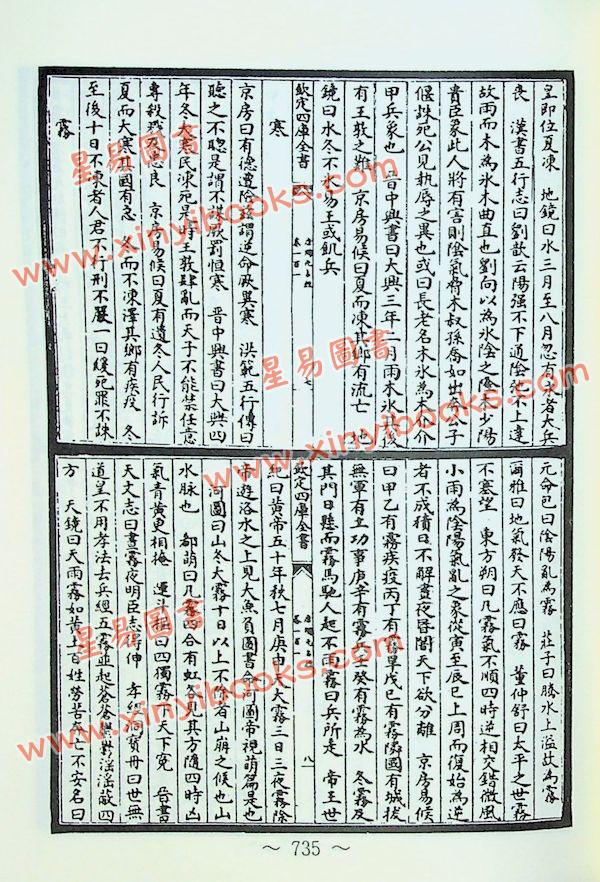 皇即位夏凍　地鏡曰水三月至八月忽有氷者大兵
喪　漢書五行志曰劉歆云陽强不下通陰化不上達
故雨而木為氷木曲直也劉向以為氷陰之盛木少陽
貴臣象此人將有害則陰氣脅木叔孫僑如出奔公子
偃誅死公見執辱之異也或曰長老名木氷為木介介
甲兵象也　晉中興書曰大興三年二月雨木氷後
有王敦之難　京房易候曰夏而凍其鄉有流亡　地
鏡曰水冬不氷易王或飢兵
欽定四庫全書
唐開元占經
卷一百一
七
寒
京房曰有德遭險兹謂逆命厥異寒　洪範五行傳曰
聽之不聰是謂不謀厥罰恒寒　晉中興書曰大興四
年冬大寒民凍死是時王敦肆亂而天子不能禁任意
專殺殘及忠良　京房易候曰夏有遺冬人民行訴
夏而大寒其國有急　冬而不凍澤其鄉有疾疫　冬
至後十日不凍者人君不行刑不嚴一曰緩死罪不誅
霧
元命苞曰陰陽亂為霧　莊子曰騰水上溢故為霧
爾雅曰地氣發天不應曰霧　董仲舒曰太平之世霧
不塞望　東方朔曰凡霧氣不順四時逆相交錯微風
小雨為陰陽氣亂之象從寅至辰巳上周而復始為逆
者不成積日不解晝夜昏闇天下欲分離　京房易候
曰甲乙有霧疾疫丙丁有霧旱戊巳有霧隣國有城拔
無軍有立功事庚辛有霧兵壬癸有霧為水　冬霧及
其門日懸而霧馬馳人起不雨霧曰兵所走　帝王世
欽定四庫全書
唐開元占經
卷一百一
八
紀曰黃帝五十年秋七月庚申天大霧三日三夜霧除
帝遊洛水之上見大魚負圖書今河圖帝視萌篇是也
河圖曰山冬大霧十日以上不除者山崩之候也山
水脉也　郗萌曰凡霧四合有虹各見其方隨四時凶
氣青黃更相掩　運斗樞曰四濁霧天下冤　晉書
天文志曰晝霧夜明臣志得伸　世無
道呈不用孝法去兵經五霧並起蒼蒼 滛滛蔽四
方　天鏡曰天雨霧如黃土百姓勞苦亡不安名曰
～ 735 ～
星易圖書
www.xinyibooks.com
星易圖書
www.xinyibooks.com
星易圖書
www.xinyibooks.com